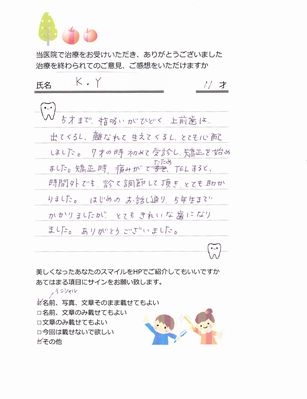 当医院で治療をお受けいただき、ありがとうございました
治療を終わられてのご意見、ご感想をいただけますか
氏名 K.Y 11才
5才まで、指吸いがひどく上前歯は、
出てくるし、離なれて生えてくるし、とても心配
しました。7才の時初めて受診し、矯正を始め
ました。矯正時、痛みがでたためTELすると、
時間外でも診て調節して頂き、とても助か
りました。はじめのお話し通り5年生まで
かかりましたが、とてもきれいな歯になり
ました。ありがとうございました。
美しくなったあなたのスマイルをHPでご紹介してもいいですか
あてはまる項目にサインをお願い致します。
イニシャル
□名前、写真、文章そのまま載せてもよい
□名前、文章のみ載せてもよい
□文章のみ載せてもよい
□今回は載せないで欲しい
□その他